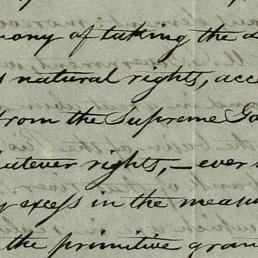 mony of taking the
natural rights, acc
from the Supreme Go
hatever rights, — ever
excess in the measu
the primitive gran